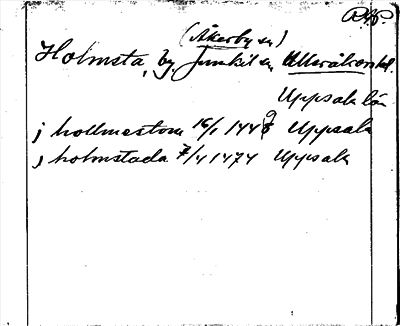 (Åkerby sn)
Holmsta, by, Jumkil sn Ulleråkers hd.
Uppsala län
j hollmestom 16/1 1448 Uppsala
j holmstada 7/4 1474 Uppsala